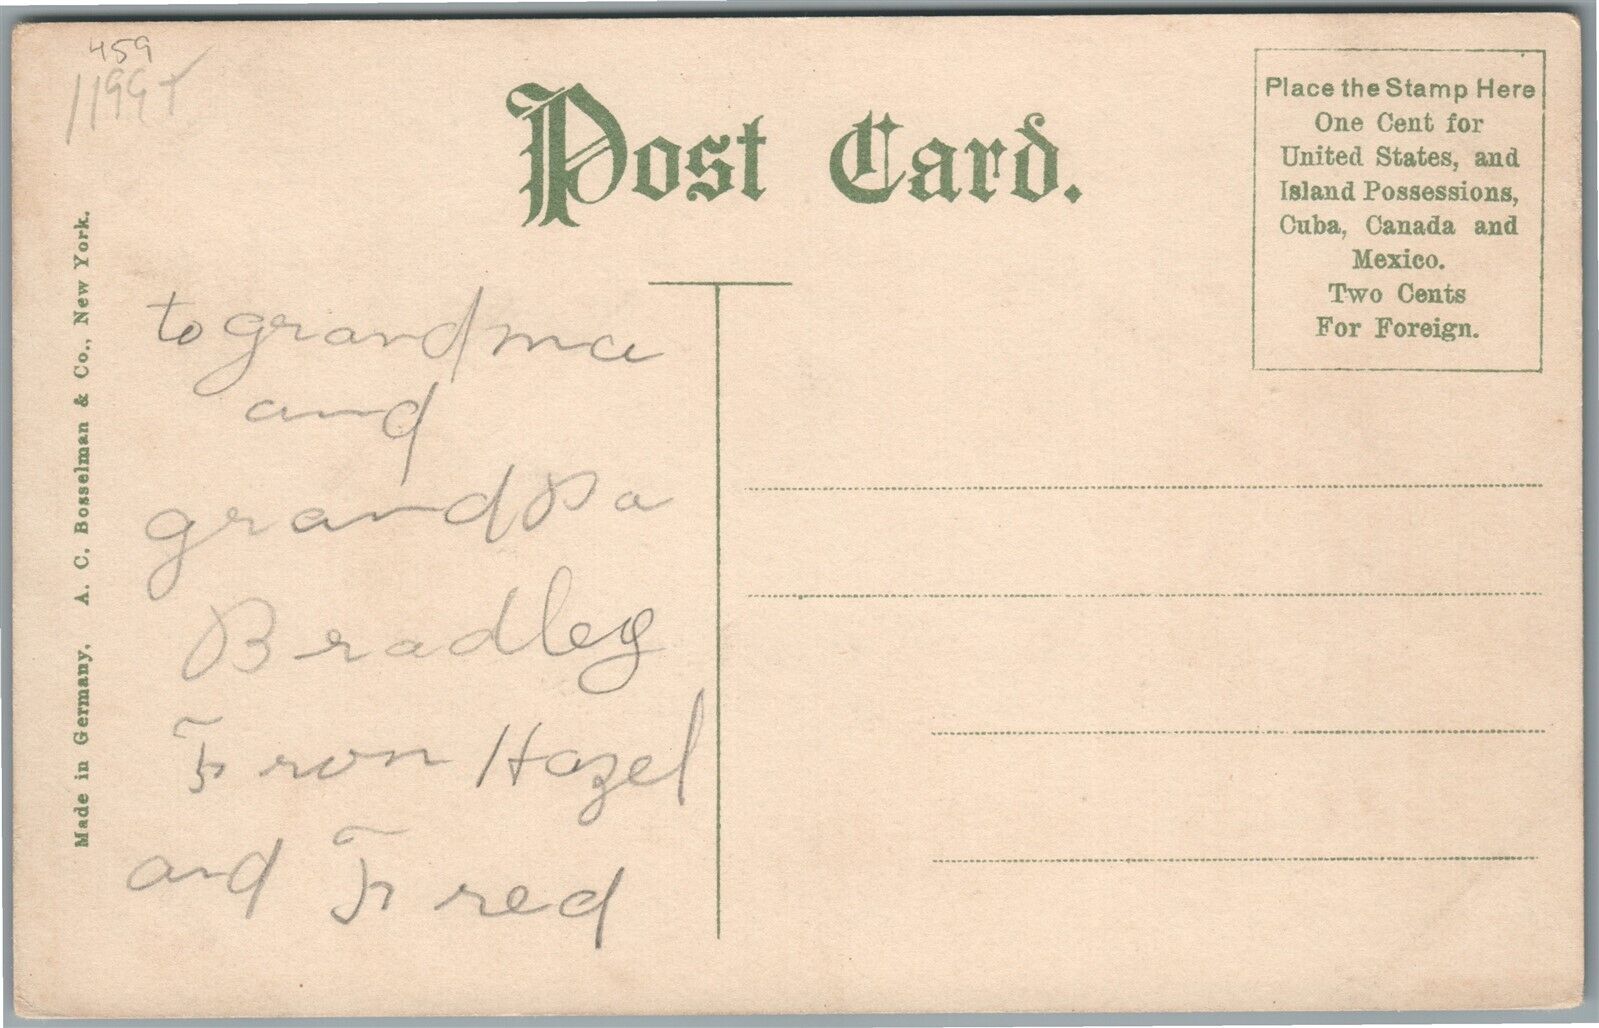 459
1199+
Post Card.
Place the Stamp Here
One Cent for
United States, and
Island Possessions,
Cuba, Canada and
Mexico.
Two Cents
For Foreign.
to grandma
and
grandpa
Bradley
From Hazel
and Fred
Made in Germany, A. C. Bosselman & Co., New York.